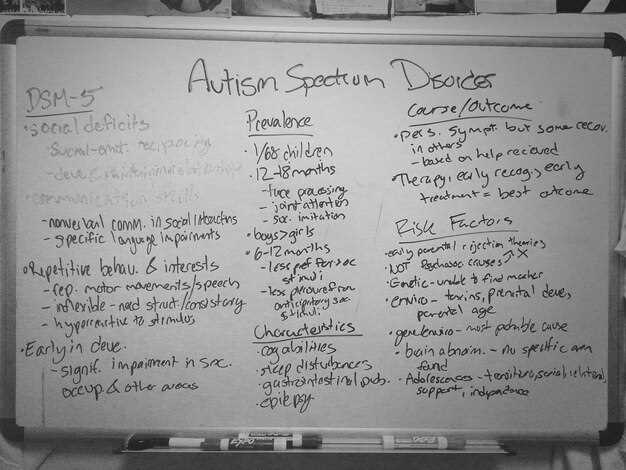 Autism Spectrum Disorder
DSM-5
• Social deficits
- Social-emot. reciprocity
- deve & maintaining relationships
• Communication skills
- nonverbal comm. in social interactions
- specific language impairments
• Repetitive behav. & interests
- rep. motor movements/speech
- inflexible - need struct/consistancy
- hyperreactive to stimulus
• Early in deve.
- signif. impairment in soc.
occup. & other areas
Prevalence
• 1/68 children
• 12-18 months
- face processing
- joint attention
- soc. imitation
• boys > girls
• 6-12 months
- less pref for soc
stimuli
- less
anticipatory soc.
stimuli
Characteristics
• cog abilities
• sleep disturbances
• gastrointestinal prob.
• epilepsy
Course/Outcome
• pers. sympt. but some recov.
in others
- based on help recieved
• Therapy: early recog, early
treatment = best outcome
Risk Factors
• early parental rejection theories
• NOT Psychosoc causes X
• Genetic - unable to find marker
• enviro - toxins, prenatal deve,
parental age
• gene/enviro - most probable cause
• brain abnorm. - no specific area
found
• Adolescences - transitions, social, relational,
support, independence
EXPO